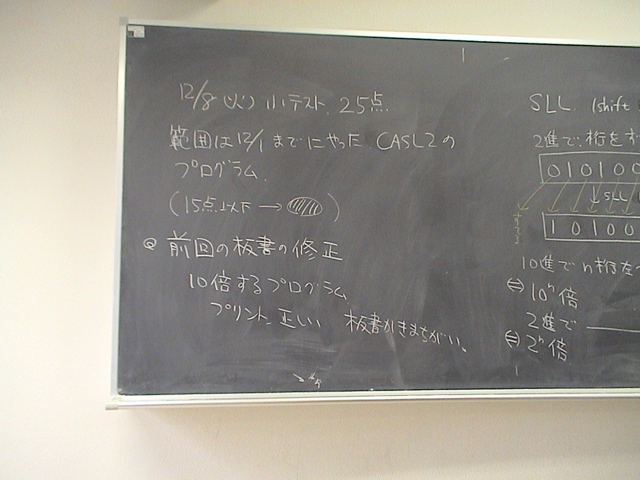 12/8(火) 小テスト. 25点.
範囲は12/1までにやった CASL2の
プログラム.
(15点以下 → )
前回の板書の修正
10倍するプログラム
プリント:正しい 板書がまちがい。
SLL. (shift
2進で、桁をず
0 1 0 1 0 0
↓ SLL
1 0 1 0 0
10進でn桁を
⇔ 10ⁿ倍
2進で
⇔ 2ⁿ倍.